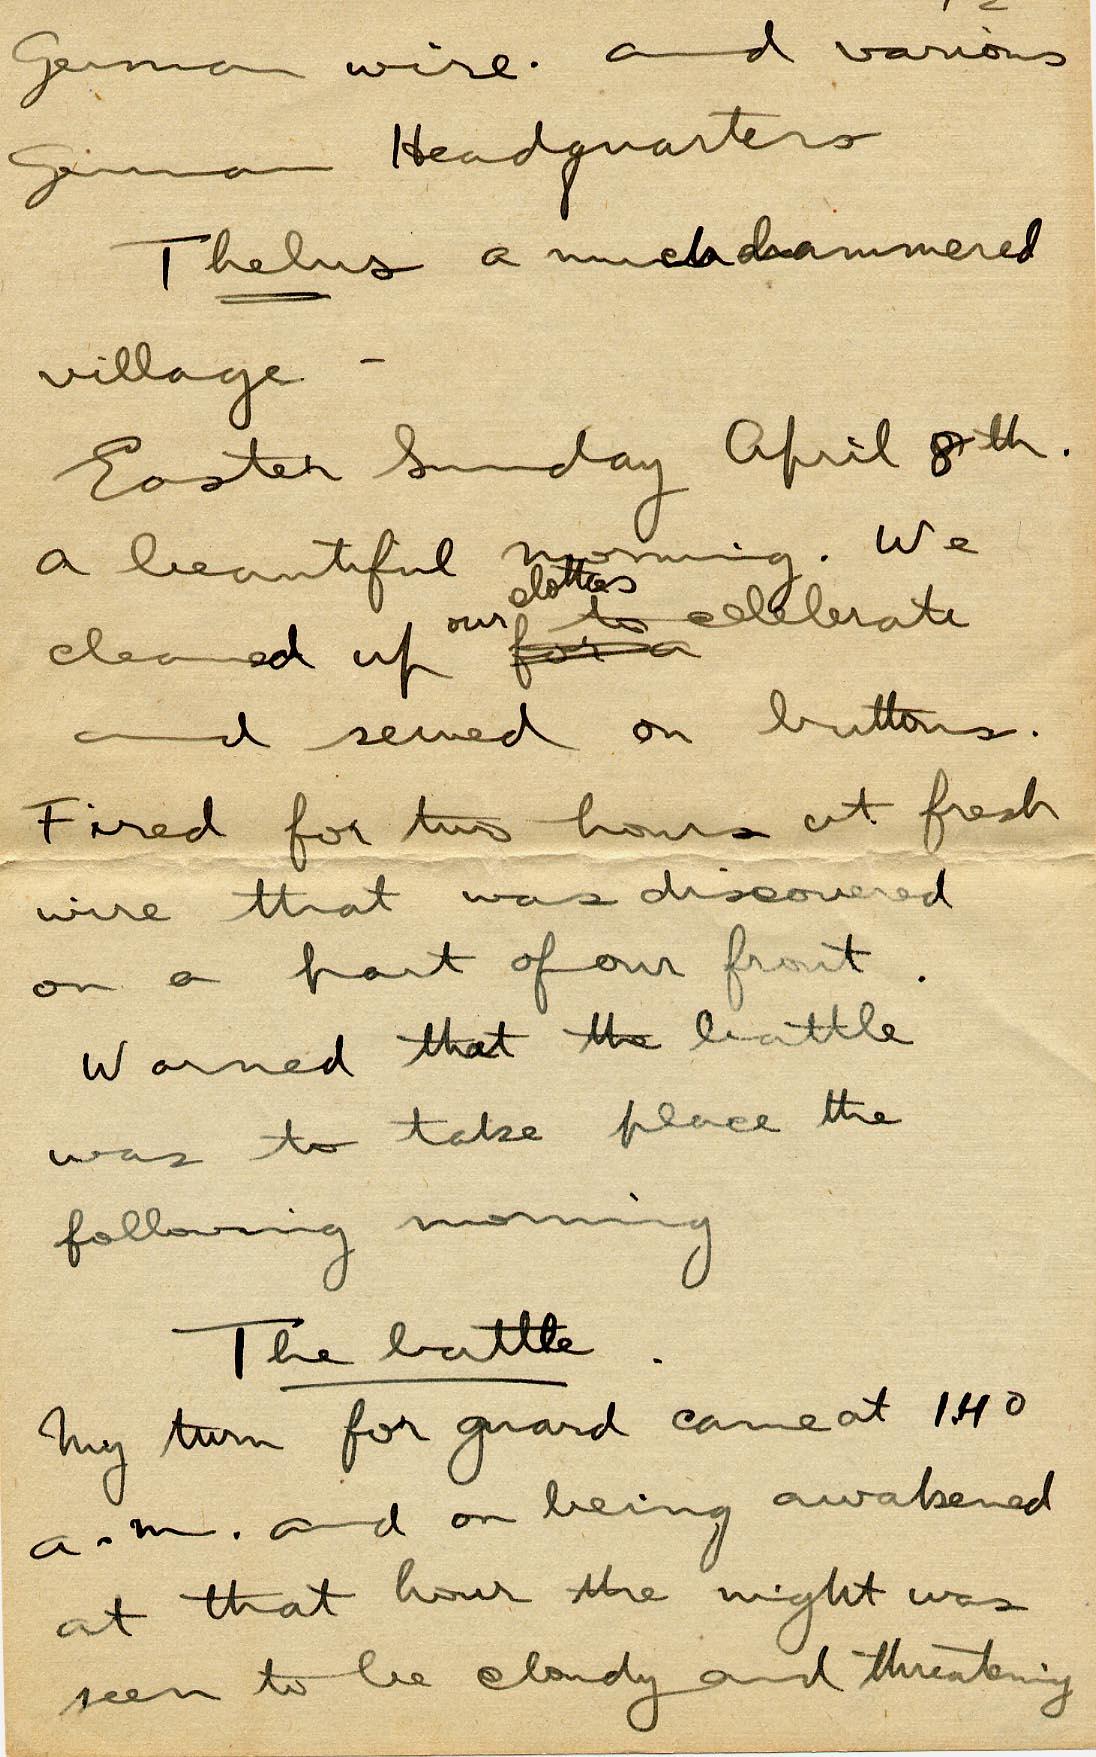 German wire. and various
German Headquarters
Thelus a much hammered
village -
Easter Sunday April 8th.
a beautiful morning. We
cleaned up our clothes for a to celebrate
and sewed on buttons.
Fired for two hours at fresh
wire that was discovered
on a part of our front.
Warned that the battle
was to take place the
following morning
The battle.
My turn for guard came at 1.40
a.m. and on being awakened
at that hour the night was
seen to be cloudy and threatening